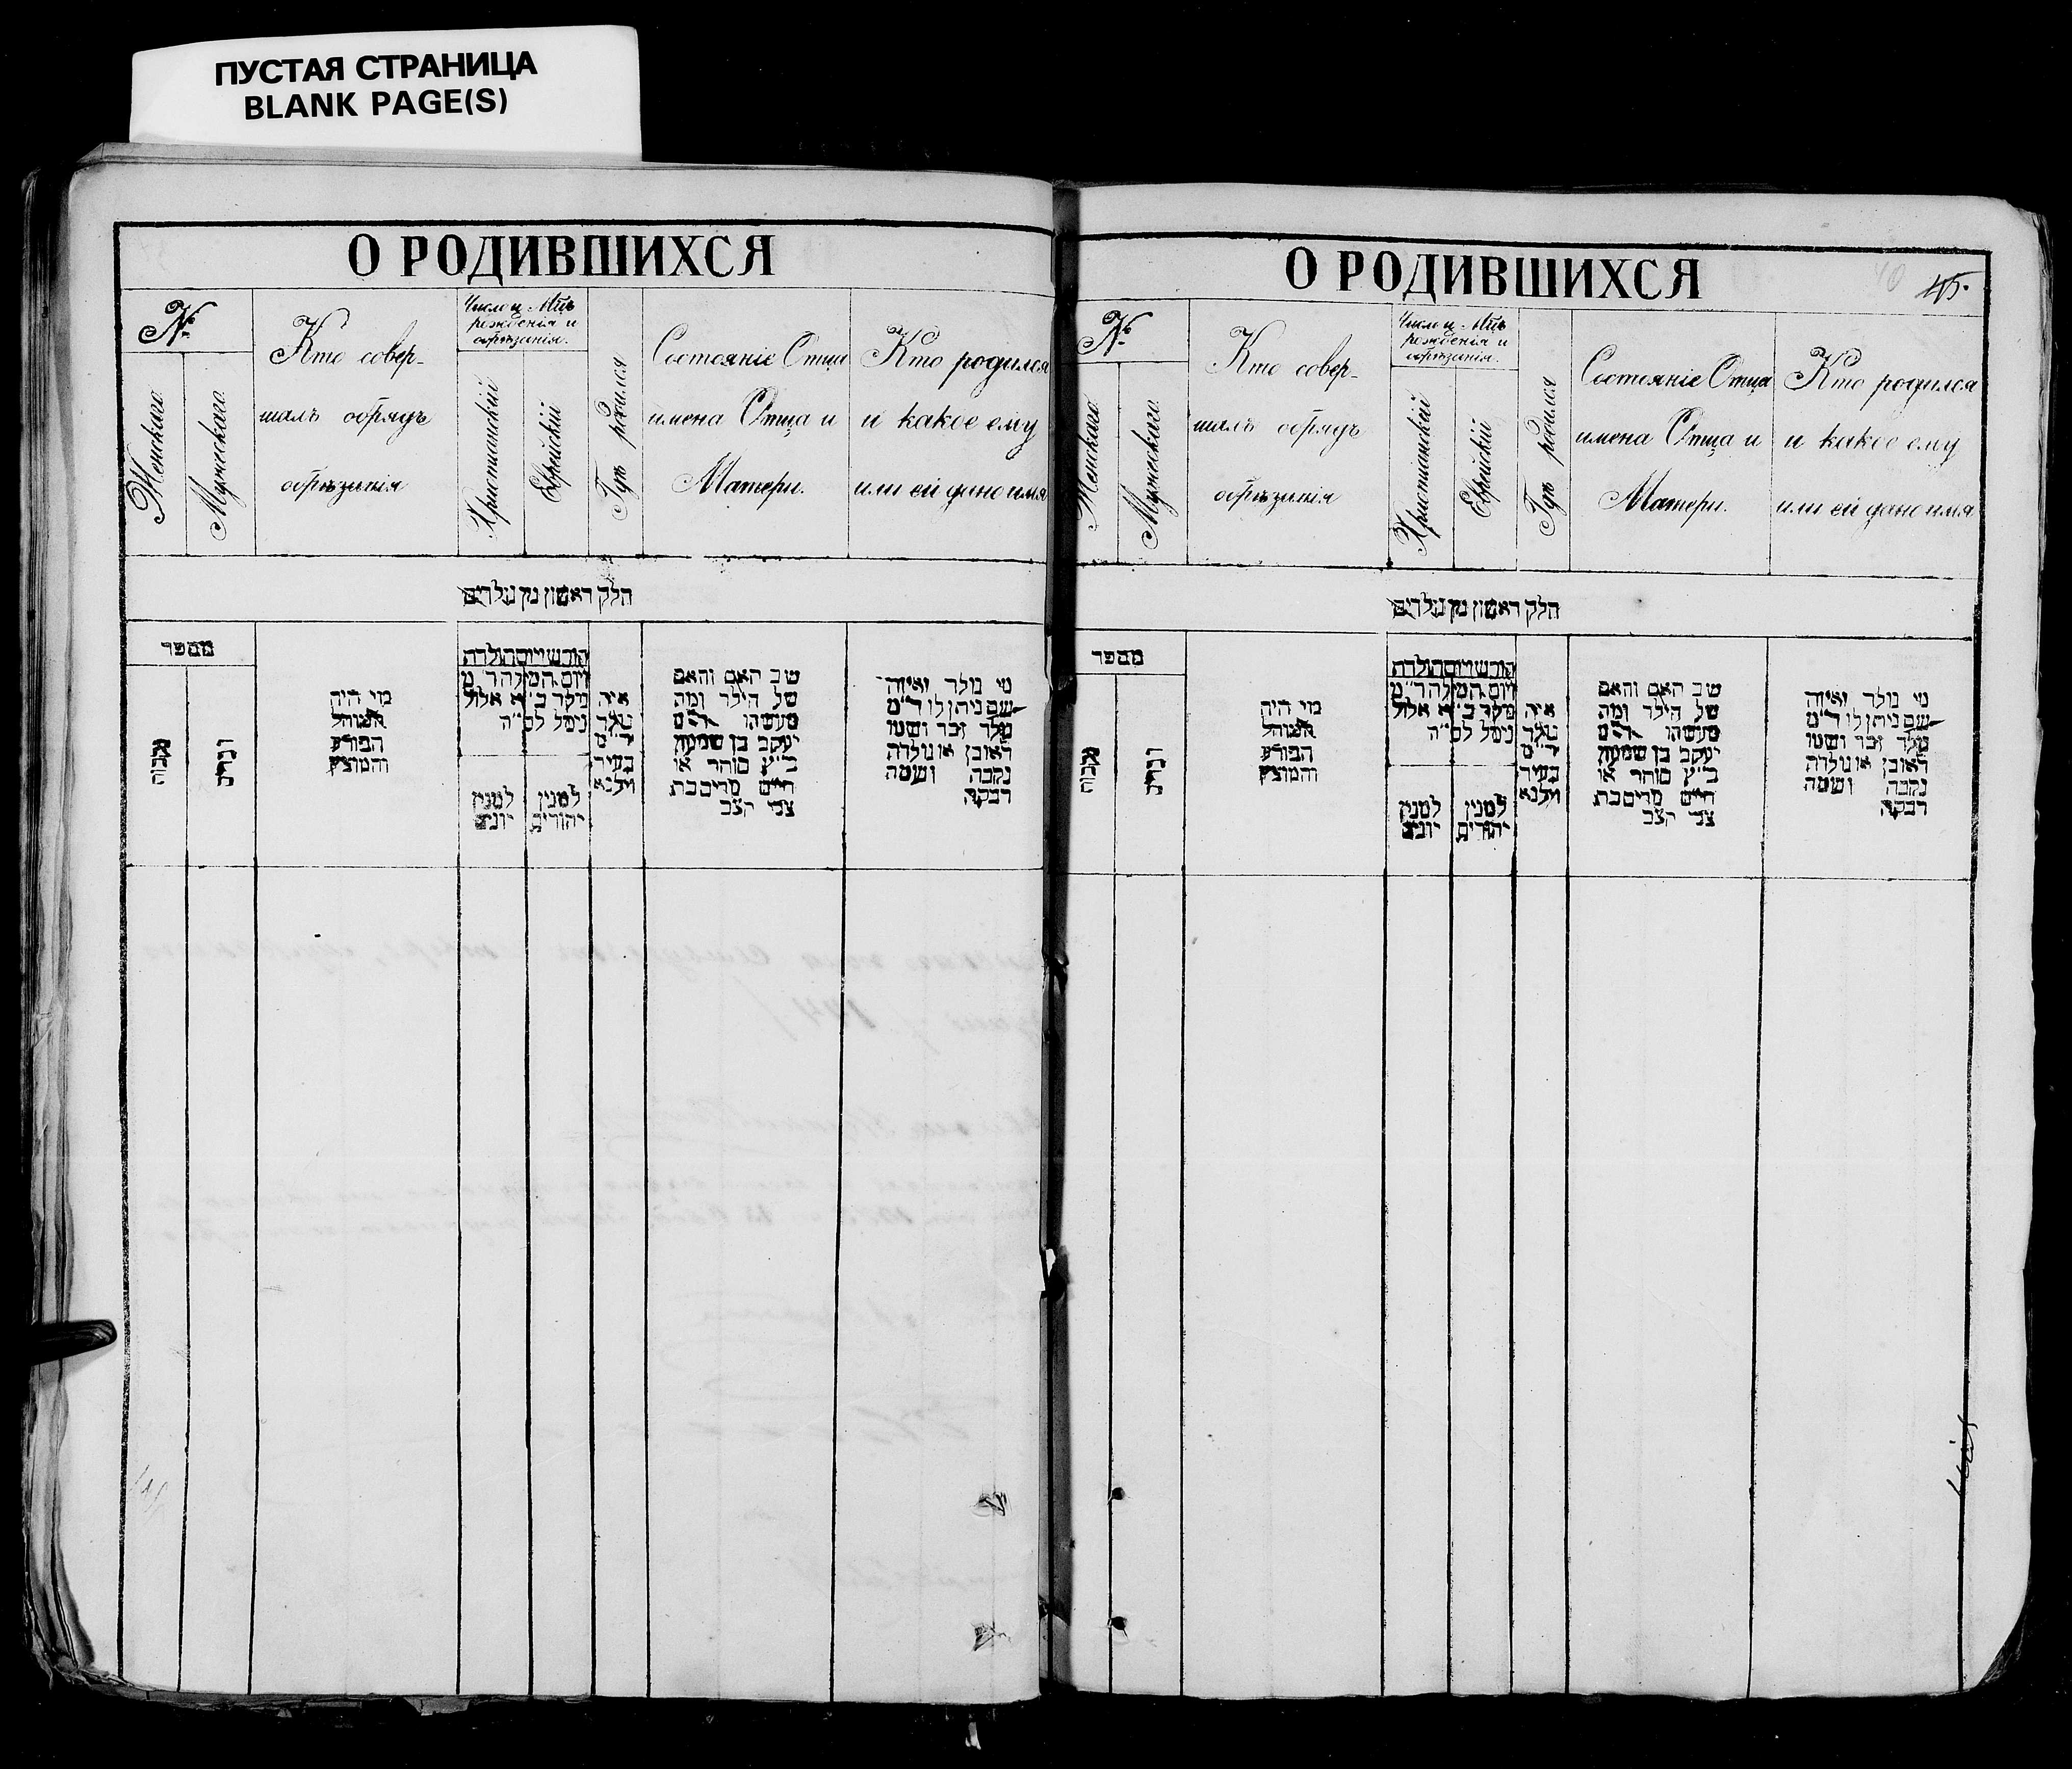 ПУСТАЯ СТРАНИЦА
BLANK PAGE(S)
О РОДИВШИХСЯ
№
Женскаго
Мужескаго
Кто совер-
шалъ обрядъ
обрѣзанія
Число и Мцъ
рожденія и
обрѣзанія.
Христианскій
Еврейскій
Гдѣ родился
Состояніе Отца
имена Отца и
Матери.
Кто родился
и какое ему
или ей дано имя
חלק ראשון מן נולדים
מספר
מי היה
המוהל
הפורע
והמוצץ
ויום המילה ד״מ
לס״ה
למנין
יונים
למנין
יהודים
איה
נולד
ד״מ
בעיר
ווילנא
שב האם והאם
של הילד ומה
יעקב בן שמעון
כ״ץ סוחר או
חייט מרים בת
צבי קצב
מי נולד ואיזה
שם ניתן לו ד״מ
נולד זכר ושמו
ראובן או נולדה
נקבה ושמה
רבקה
О РОДИВШИХСЯ
45.
№
Женскаго
Мужескаго
Кто совер-
шалъ обрядъ
обрѣзанія
Число и Мцъ
рожденія и
обрѣзанія.
Христіанскій
Еврейскій
Гдѣ родился
Состояніе Отца
имена Отца и
Матери.
Кто родился
и какое ему
или ей дано имя
חלק ראשון מן נולדים
מספר
מי היה
המוהל
הפורע
והמוצץ
ויום המילה ד״מ
לס״ה
למנין
יונים
למנין
יהודים
איה
נולד
ד״מ
בעיר
ווילנא
שב האם והאם
של הילד ומה
יעקב בן שמעון
כ״ץ סוחר או
חייט מרים בת
צבי קצב
מי נולד ואיזה
שם ניתן לו ד״מ
נולד זכר ושמו
ראובן או נולדה
נקבה ושמה
רבקה